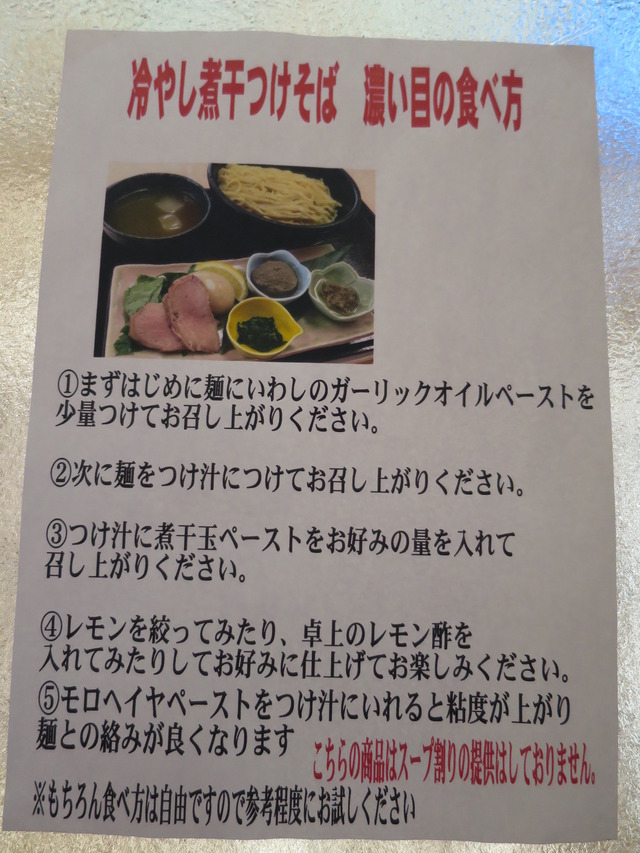 冷やし煮干つけそば　濃い目の食べ方
①まずはじめに麺にいわしのガーリックオイルペーストを
少量つけてお召し上がりください。
②次に麺をつけ汁につけてお召し上がりください。
③つけ汁に煮干玉ペーストをお好みの量を入れて
召し上がりください。
④レモンを絞ってみたり、卓上のレモン酢を
入れてみたりしてお好みに仕上げてお楽しみください。
⑤モロヘイヤペーストをつけ汁にいれると粘度が上がり
麺との絡みが良くなります
こちらの商品はスープ割りの提供はしておりません。
※もちろん食べ方は自由ですので参考程度にお試しください